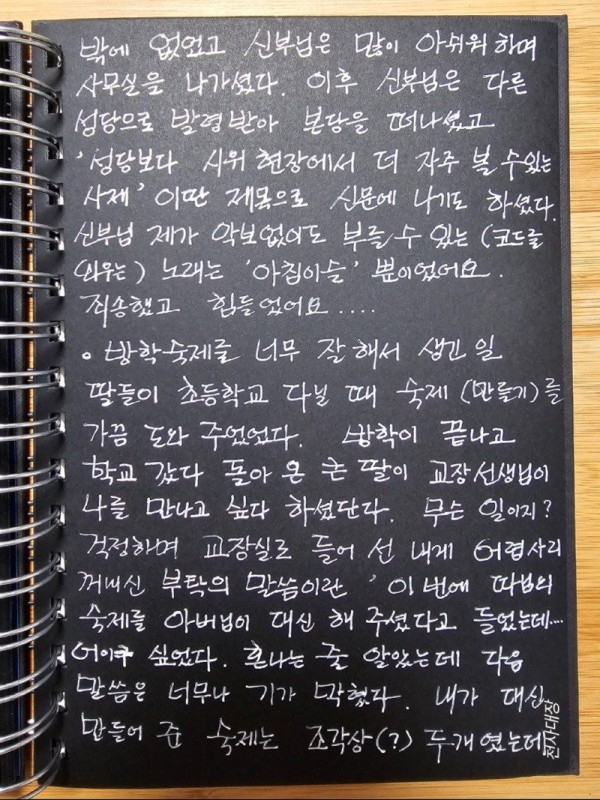 밖에 없었고 신부님은 많이 아쉬워 하며
사무실을 나가셨다. 이후 신부님은 다른
성당으로 발령받아 본당을 떠나셨고
'성당보다 시위 현장에서 더 자주 볼 수 있는
사제' 이란 제목으로 신문에 나기도 하셨다.
신부님 제가 악보없이도 부를 수 있는 (코드를
외우는) 노래는 '아침이슬' 뿐이었어요.
죄송했고 힘들었어요....
∘ 방학숙제를 너무 잘 해서 생긴 일
딸들이 초등학교 다닐 때 숙제 (만들기)를
가끔 도와 주었었다. 방학이 끝나고
학교 갔다 돌아 온 큰 딸이 교장선생님이
나를 만나고 싶다 하셨단다. 무슨 일이지?
걱정하며 교장실로 들어 선 내게 어렵사리
꺼내신 부탁의 말씀이란 '이번에 따님의
숙제를 아버님이 대신 해 주셨다고 들었는데....
어이쿠 싶었다. 혼나는 줄 알았는데 다음
말씀은 너무나 기가 막혔다. 내가 대신
만들어 준 숙제는 조각상(?) 두개였는데